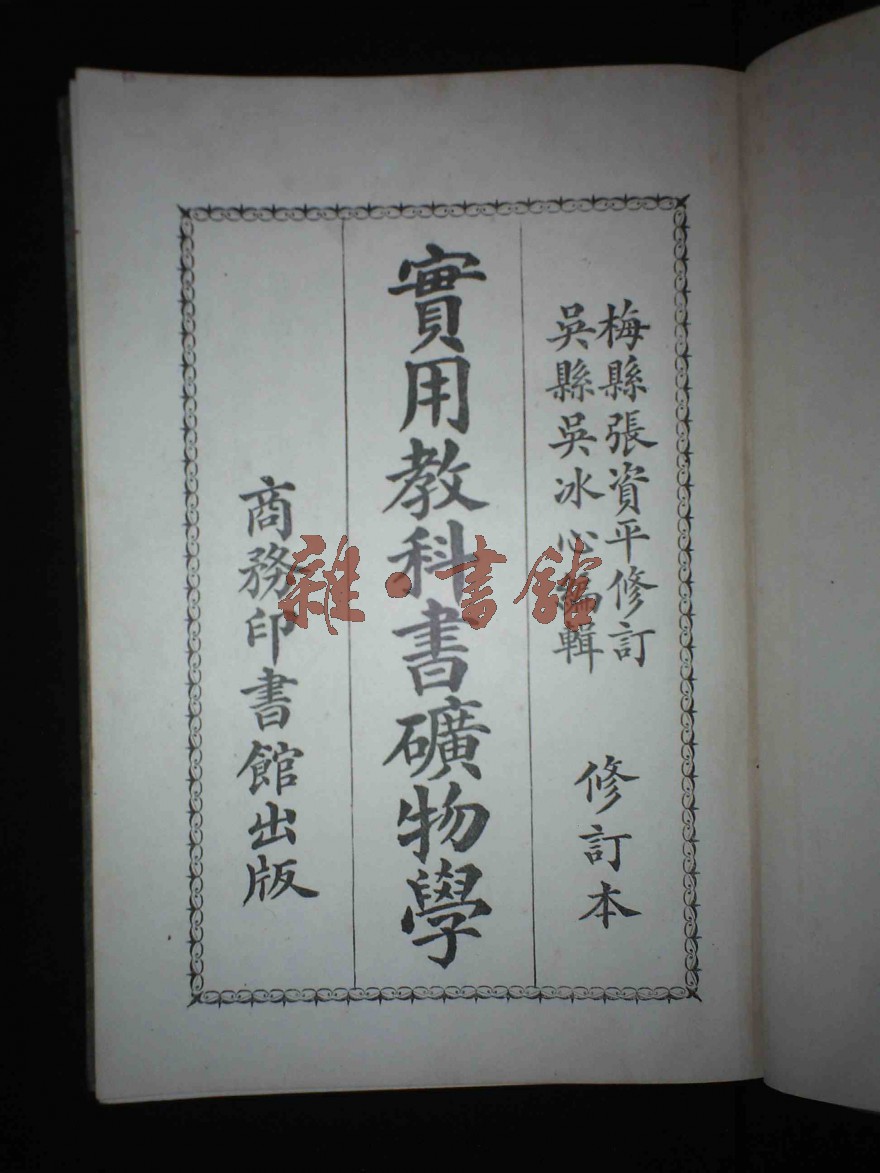 梅縣張資平修訂
吳縣吳冰心編輯
修訂本
實用教科書礦物學
商務印書館出版
雜·書館